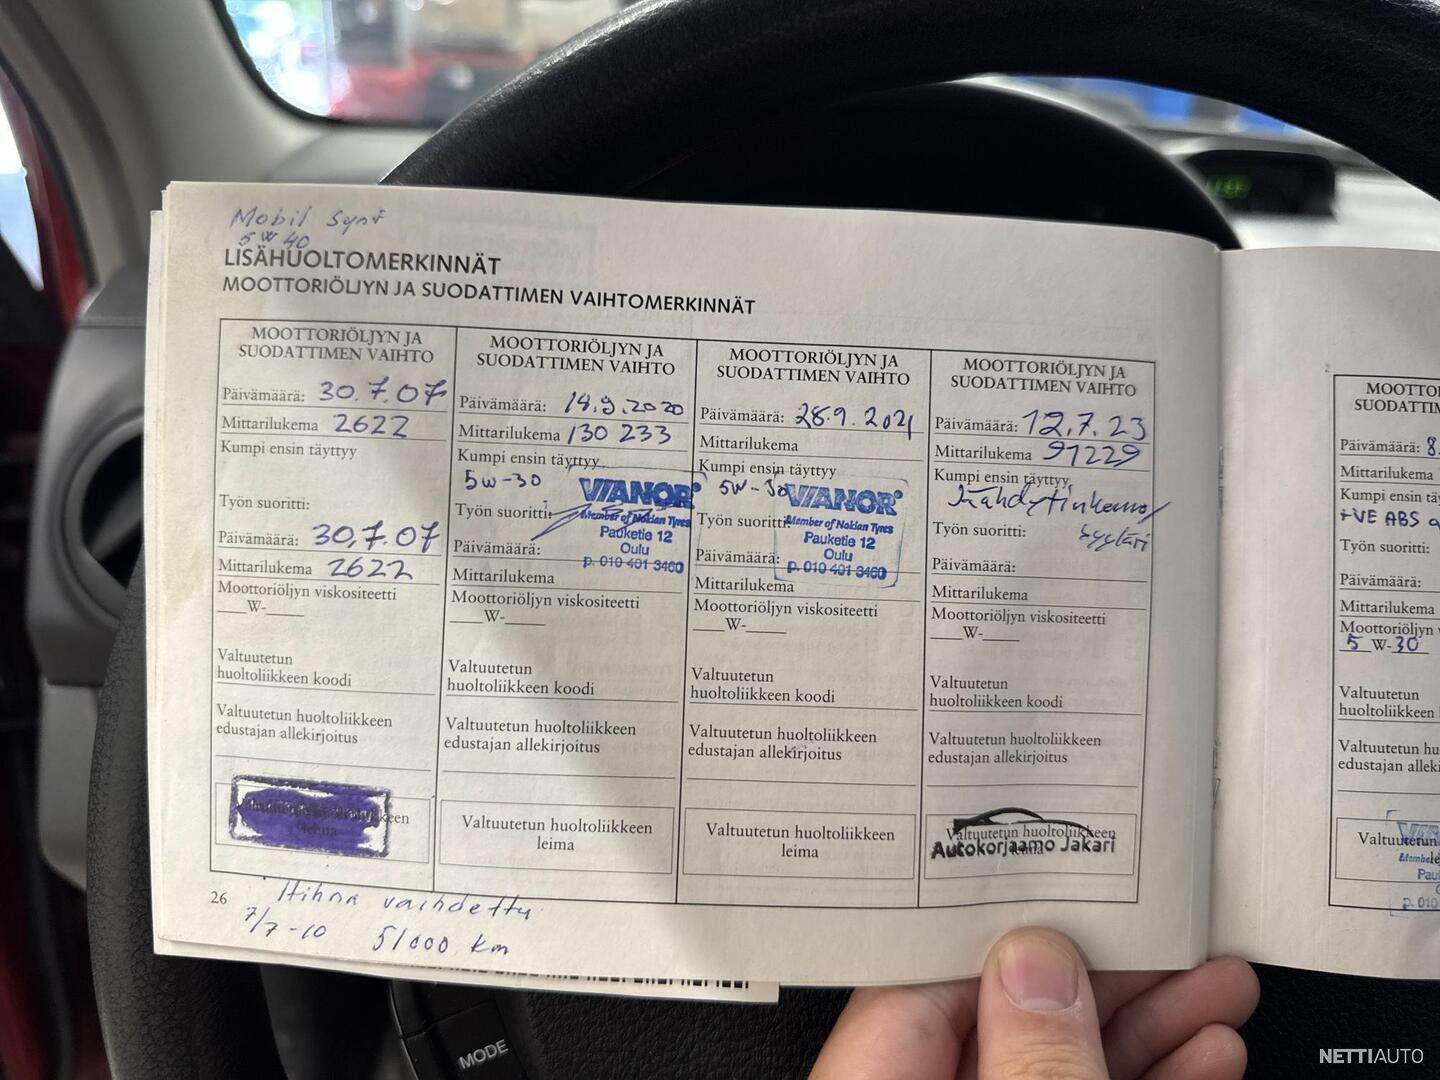 Mobil Synt
5W40
LISÄHUOLTOMERKINNÄT
MOOTTORIÖLJYN JA SUODATTIMEN VAIHTOMERKINNÄT
MOOTTORIÖLJYN JA
SUODATTIMEN VAIHTO
Päivämäärä: 30.7.07
Mittarilukema 2622
Kumpi ensin täyttyy
Työn suoritti:
Päivämäärä: 30.7.07
Mittarilukema 2622
Moottoriöljyn viskositeetti
___W-____
Valtuutetun
huoltoliikkeen koodi
Valtuutetun huoltoliikkeen
edustajan allekirjoitus
MOOTTORIÖLJYN JA
SUODATTIMEN VAIHTO
Päivämäärä: 14.9.2020
Mittarilukema 130 233
Kumpi ensin täyttyy
5W-30
Työn suoritti:
VIANOR
Member of Nokian Tyres
Pauketie 12
Oulu
p. 010 401 3460
Päivämäärä:
Mittarilukema
Moottoriöljyn viskositeetti
___W-____
Valtuutetun
huoltoliikkeen koodi
Valtuutetun huoltoliikkeen
edustajan allekirjoitus
Valtuutetun huoltoliikkeen
leima
MOOTTORIÖLJYN JA
SUODATTIMEN VAIHTO
Päivämäärä: 28.9.2021
Mittarilukema
Kumpi ensin täyttyy
5W-30
Työn suoritti:
VIANOR
Member of Nokian Tyres
Pauketie 12
Oulu
p. 010 401 3460
Päivämäärä:
Mittarilukema
Moottoriöljyn viskositeetti
___W-____
Valtuutetun
huoltoliikkeen koodi
Valtuutetun huoltoliikkeen
edustajan allekirjoitus
Valtuutetun huoltoliikkeen
leima
MOOTTORIÖLJYN JA
SUODATTIMEN VAIHTO
Päivämäärä: 12.7.23
Mittarilukema 91229
Kumpi ensin täyttyy
Jäähdytinkenno/
Työn suoritti:
Päivämäärä:
Mittarilukema
Moottoriöljyn viskositeetti
___W-____
Valtuutetun
huoltoliikkeen koodi
Valtuutetun huoltoliikkeen
edustajan allekirjoitus
Valtuutetun huoltoliikkeen
Autokorjaamo Jakari
26
Hihna vaihdettu
7/7-10 51000 km
MOOTTO
SUODATTIM
Päivämäärä: 8.
Mittarilukema
Kumpi ensin tä
+VE ABS
Työn suoritti:
Päivämäärä:
Mittarilukema
Moottoriöljyn v
5 W-30
Valtuutetun
huoltoliikkeen
Valtuutetun hu
edustajan alleki
Valtuutetun
MODE
NETTIAUTO